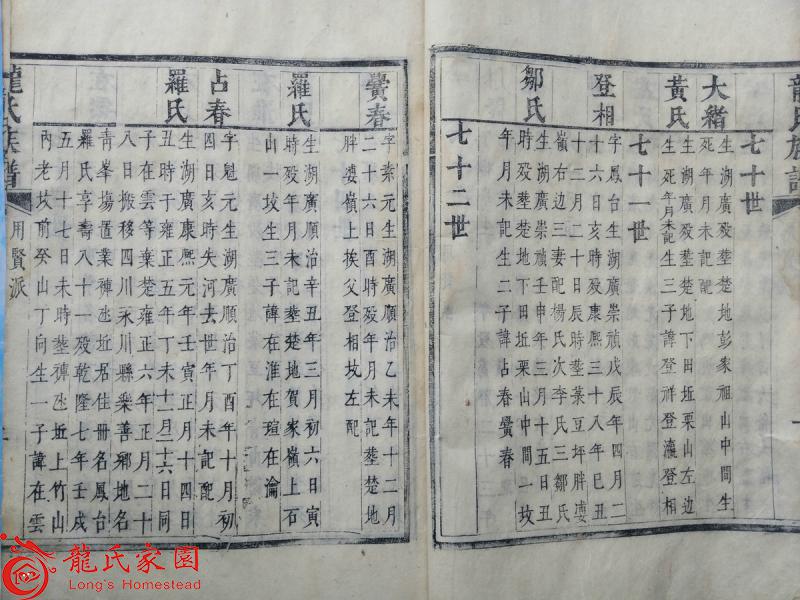 龍氏族譜
七十世
大緒
生湖廣殁塟楚地彭家祖山中間生
死年月未記配
黃氏
生湖廣殁塟楚地下田坵栗山左边
生死年月未記生三子諱登祥登瀛登相
七十一世
登相
字鳳台生湖廣崇禎戊辰年四月二
十六日亥時殁康熙三十八年己丑
十二月二十日辰時塟菉豆坪胖婆
嶺右边三妻配楊氏次李氏三鄒氏
鄒氏
生湖廣崇禎壬申年三月十五日丑
時殁塟楚地下田坵栗山中間一坟
年月未記生二子諱占春黌春
七十二世
黌春
字素元生湖廣順治乙未年十二月
二十六日酉時殁年月未記塟楚地
胖婆嶺上挨父登相坟左配
羅氏
生湖廣順治辛丑年三月初六日寅
時殁年月未記塟楚地賀家嶺上石
山一坟生三子諱在淮在瑄在淪
占春
字魁元生湖廣順治丁酉年十月初
四日亥時失河去世年月未記配
羅氏
生湖廣康熙元年壬寅正月十四日
丑時于雍正五年丁未十二月二十六日同
子在雲等棄楚雍正六年正月二十
八日搬移四川永川縣樂善鄉地名
青峯塲置業褲氹坵居住冊名鳳台
羅氏享壽八十一殁乾隆七年壬戌
五月十七日未時塟褲氹坵上竹山
內老坟前癸山丁向生一子諱在雲
龍氏族譜
用賢派
龍氏家園
Long's Homestead